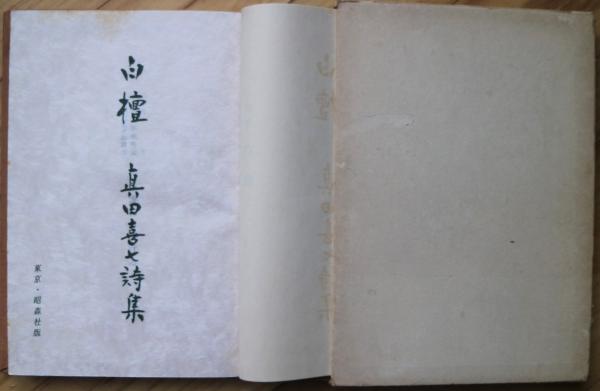 白檀
真田喜七詩集
東京・昭森社版